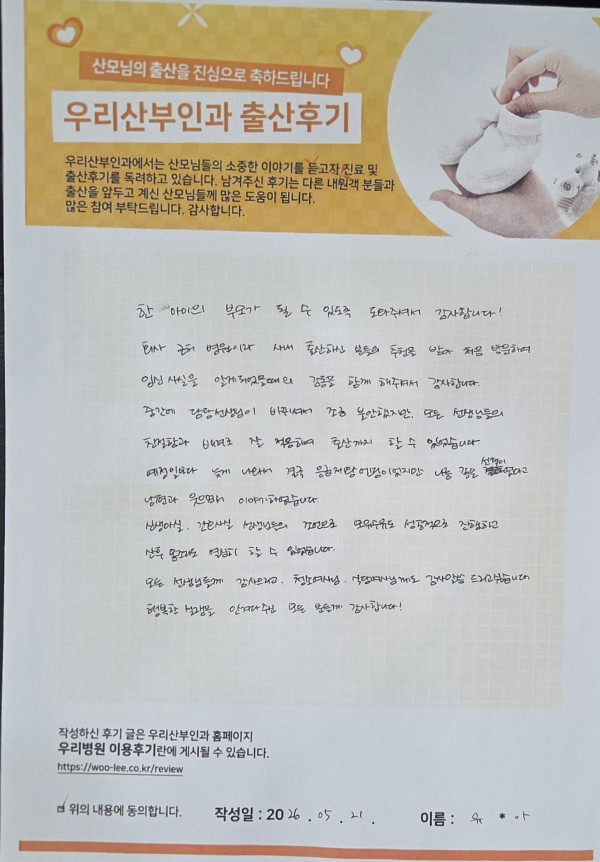 산모님의 출산을 진심으로 축하드립니다
우리산부인과 출산후기
우리산부인과에서는 산모님들의 소중한 이야기를 듣고자 진료 및
출산후기를 독려하고 있습니다. 남겨주신 후기는 다른 내원객 분들과
출산을 앞두고 계신 산모님들께 많은 도움이 됩니다.
많은 참여 부탁드립니다. 감사합니다.
한 아이의 부모가 될 수 있도록 도와주셔서 감사합니다!
회사 근처 병원이라 사내 출산하신 분들의 추천을 받아 처음 방문하여
임신 사실을 알게되었을때의 감동을 함께 해주셔서 감사합니다.
중간에 담당선생님이 바뀌셔서 조금 불안했지만, 모든 선생님들의
친절함과 배려로 잘 적응하여 출산까지 할 수 있었습니다
예정일보다 늦게 나와서 결국 응급제왕엔딩이었지만 나름 좋은 선택이었다고
남편과 웃으며 이야기하였습니다
신생아실, 간호사실 선생님들의 조언으로 모유수유도 성공적으로 진행하고
산후 몸조리도 열심히 할 수 있었습니다.
모든 선생님들께 감사드리고, 청소여사님, 식당여사님께도 감사말씀 드리고싶습니다
행복한 선물을 안겨다주신 모든 분들께 감사합니다!
작성하신 후기 글은 우리산부인과 홈페이지
우리병원 이용후기란에 게시될 수 있습니다.
https://woo-lee.co.kr/review
위의 내용에 동의합니다. 작성일 : 2026. 05. 21. 이름 : 유 * 아